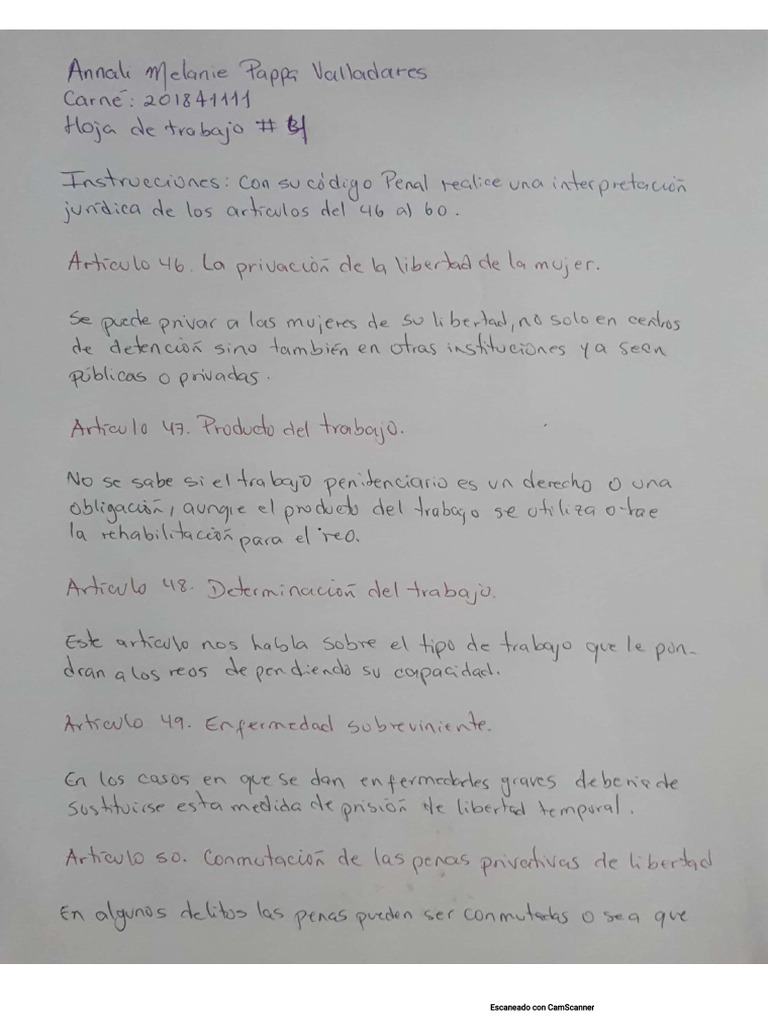 Annali Melanie Pappa Valladares
Carné: 201841111
Hoja de trabajo #
Instrucciones: Con su código Penal realice una interpretación
jurídica de los artículos del 46 al 60.
Artículo 46. La privación de la libertad de la mujer.
Se puede privar a las mujeres de su libertad, no solo en centros
de detención sino también en otras instituciones ya sean
públicas o privadas.
Artículo 47. Producto del trabajo.
No se sabe si el trabajo penitenciario es un derecho o una
obligación, aunque el producto del trabajo se utiliza
la rehabilitación para el reo.
Artículo 48. Determinación del trabajo.
Este artículo nos habla sobre el tipo de trabajo que le pon-
dran a los reos dependiendo su capacidad.
Artículo 49. Enfermedad sobreviniente.
En los casos en que se dan enfermedades graves debería de
sustituirse esta medida de prisión de libertad temporal.
Artículo 50. Conmutación de las penas privativas de libertad
En algunos delitos las penas pueden ser conmutadas o sea que
Escaneado con CamScanner